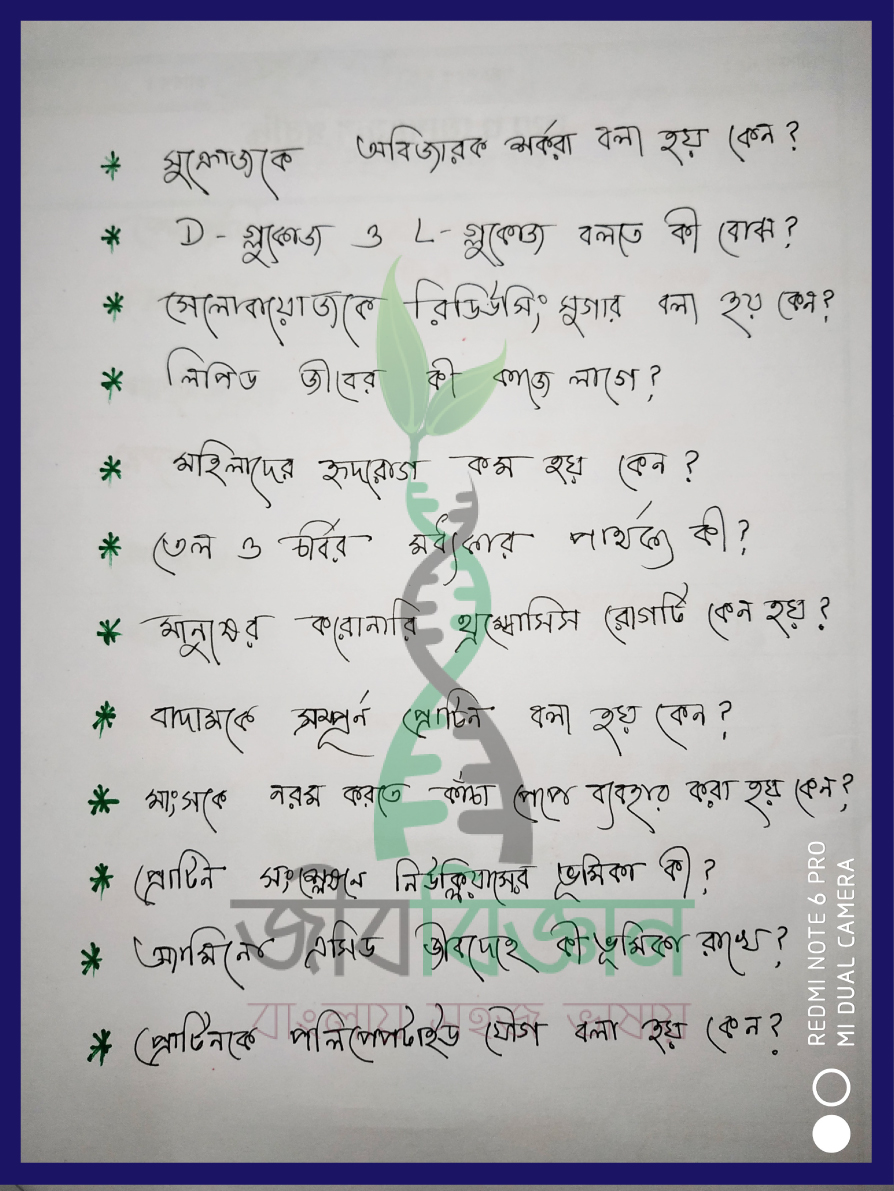 * সুক্রোজকে অবিজারক শর্করা বলা হয় কেন?
* D - গ্লুকোজ ও L - গ্লুকোজ বলতে কী বোঝ?
* সেলোবায়োজকে রিডিউসিং সুগার বলা হয় কেন?
* লিপিড জীবের কী কাজে লাগে?
* মহিলাদের হৃদরোগ কম হয় কেন?
* তেল ও চর্বির মধ্যেকার পার্থক্য কী?
* মানুষের করোনারি থ্রম্বোসিস রোগটি কেন হয়?
* বাদামকে সম্পূর্ন প্রোটিন বলা হয় কেন?
* মাংসকে নরম করতে কাঁচা পেপে ব্যবহার করা হয় কেন?
* প্রোটিন সংশ্লেষনে নিউক্লিয়াসের ভূমিকা কী?
* অ্যামিনো এসিড জীবদেহে কী ভূমিকা রাখে?
* প্রোটিনকে পলিপেপটাইড যৌগ বলা হয় কেন?
জীববিজ্ঞান
বাংলায় সহজ ভাষায়
REDMI NOTE 6 PRO
MI DUAL CAMERA